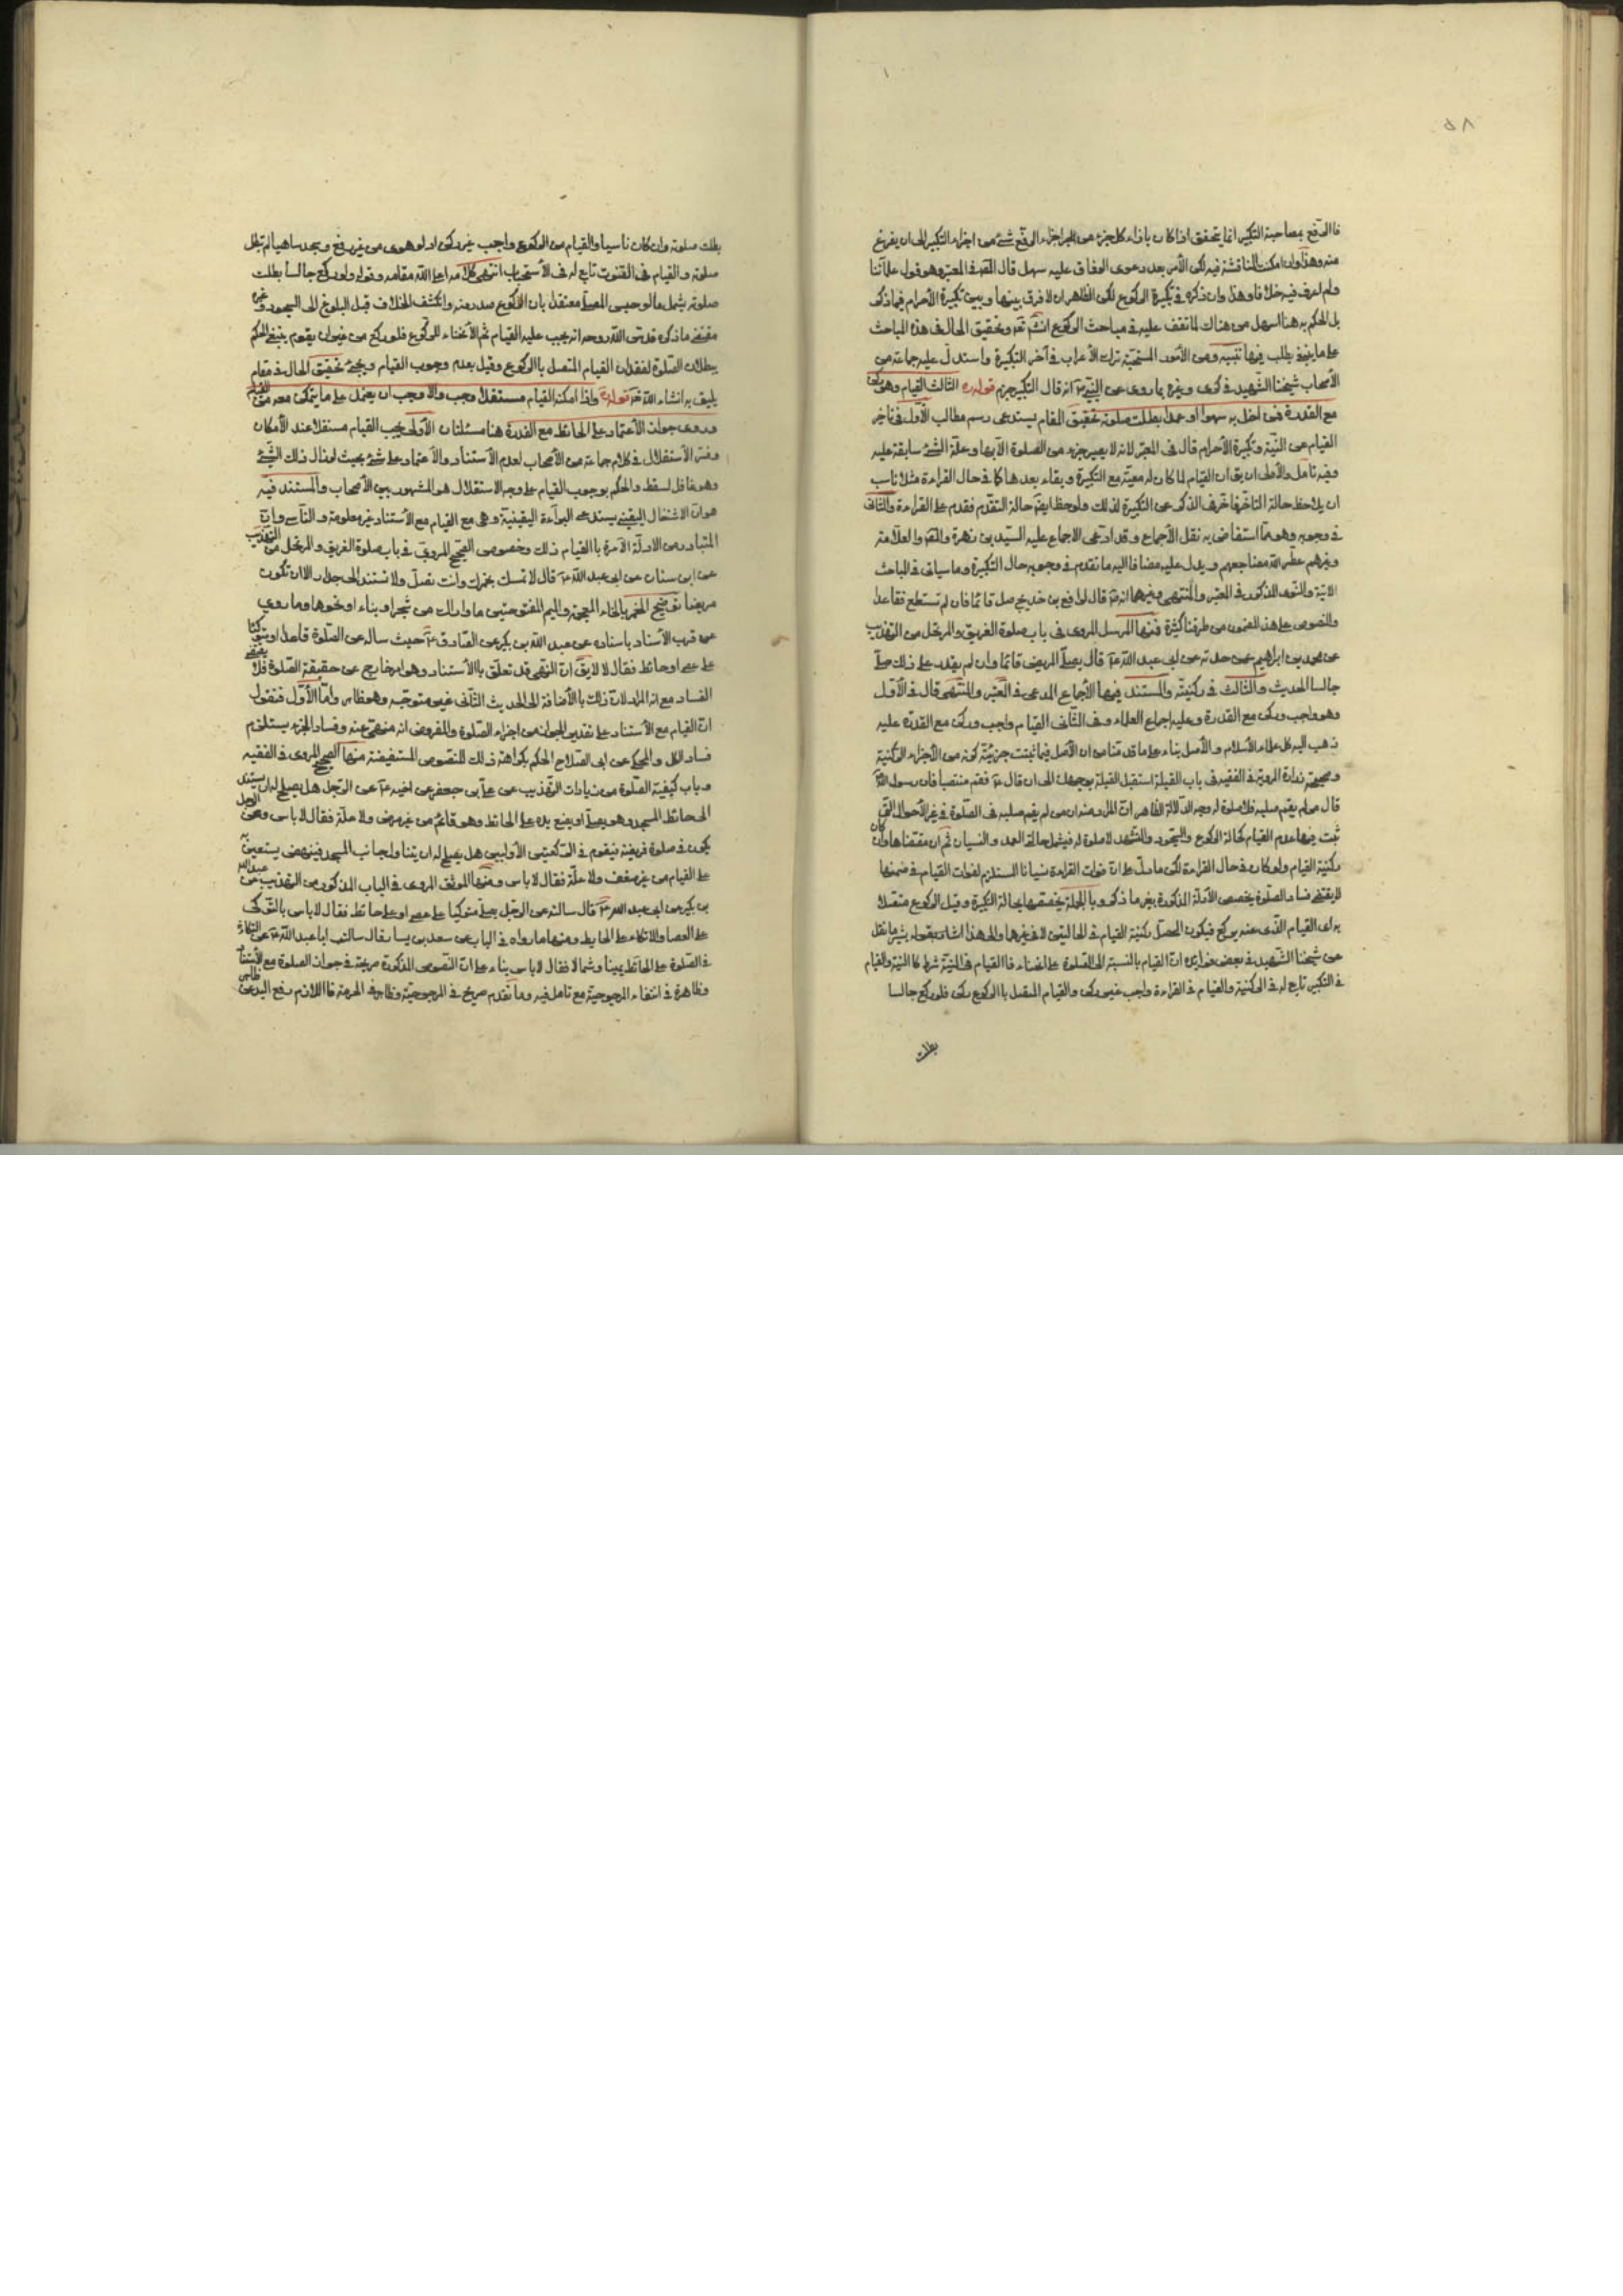 ٥٨
فاالرفع بمصاحبة التكبير انما يتحقق اذا كان بازاء كل جزء من اجزاء الرفع شئ من اجزاء التكبير الى ان يفرغ
منه وهذا وان امكنت المناقشة فيه لكن الأمر بعد دعوى الوفاق عليه سهل قال المحقق فى المعتبر وهو قول علمآئنا
ولم اعرف فيه خلافا وهذا وان ذكره فى تكبيرة الركوع لكن الظاهر ان لا فرق بينها وبين تكبيرة الأحرام فيما ذكر
بل الحكم به هنا اسهل من هناك لما تقف عليه فى مباحث الركوع انشآ تعالى وتحقيق الحال فى هذه المباحث
على ما ينبغى يطلب فيها تنبيه ومن الأمور المستحبة ترك الأعراب فى آخر التكبيرة واستدل عليه جماعة من
الأصحاب شيخنا الشهيد فى كرى وغيره بما روى عن النبى ص انه قال التكبير جزم قوله الثالث القيام وهو ركن
مع القدرة فمن اخل به سهوا او عمدا بطلت صلوته تحقيق المقام يستدعى رسم مطالب الأول فى تأخر
القيام عن النية وتكبيرة الأحرام قال فى المعتبر لانه لا يصير جزء من الصلوة الا بهما وعلة الشئ سابقة عليه
وفيه تامل والأولى ان يقال ان القيام لما كان له معية مع التكبيرة وبقاء بعدها كما فى حال القراءة مثلا ناسب
ان يلاحظ حالة التاخر فاخر فى الذكر عن التكبيرة لذلك ولوحظ ايضا حالة التقدم فقدم على القراءة والثانى
فى وجوبه وهو مما استفاض به نقل الأجماع وقد ادعى الاجماع عليه السيد بن زهرة والمحقق والعلامة
وغيرهم عطر الله مضاجعهم ويدل عليه مضافا اليه ما تقدم فى وجوبه حال التكبيرة وما سياتى فى المباحث
الاتية والنبوى المذكور فى المعتبر والمنتهى وغيرهما انه ص قال لرافع بن خديج صل قائما فان لم تستطع فقاعدا
والنصوص على هذا المضمون من طرقنا كثيرة فمنها المرسل المروى فى باب صلوة الغريق والمرتحل من التهذيب
عن محمد بن ابراهيم عمن حدثه عن ابى عبد الله ع قال يصلى المريض قائما وان لم يقدر على ذلك صلى
جالسا الحديث والثالث فى ركنيته والمستند فيها الأجماع المدعى فى المعتبر والمنتهى قال فى الأول
وهو واجب وركن مع القدرة وعليه اجماع العلماء وفى الثانى القيام واجب وركن مع القدرة عليه
ذهب اليه كل علماء الأسلام والأصل بناء على ما قدمنا من ان الأصل فيما ثبتت جزئيته كونه من الأجزاء الركنية
وصحيحة زرارة المروية فى الفقيه فى باب القبلة استقبل القبلة بوجهك الى ان قال ع فقم منتصبا فان رسول الله
قال من لم يقم صلبه فلا صلوة له وجه الدلالة الظاهر ان المراد منه ان من لم يقم صلبه فى الصلوة فى غير الأحوال التى
ثبت فيها عدم القيام كحالة الركوع والسجود والتشهد لا صلوة له فيشمل حالة العمد والنسيان ثم ان مقتضاها وان كان
ركنية القيام ولو كان فى حال القراءة لكن ما دل على ان فوات القراءة نسيانا المستلزم لفوات القيام فى ضمنها
لا يقتضى فساد الصلوة يخصص الأدلة المذكورة بغير ما ذكر وبالجملة يخصصها بحالة التكبيرة وقبل الركوع متصلا
به اى القيام الذى عنه يركع فيكون المحصل ركنية القيام فى الحاليتين لا فى غيرها والى هذا اشار بقوله يشير ما نقل
عن شيخنا الشهيد فى بعض فوايده ان القيام بالنسبة الى الصلوة على انحاء فاالقيام فى النية شرط كا النية والقيام
فى التكبير تابع له فى الركنية والقيام فى القراءة واجب غير ركن والقيام المتصل باالركوع ركن فلو ركع جالسا
بطلت
بطلت صلوته وان كان ناسيا والقيام من الركوع واجب غير ركن اذ لو هوى من غير رفع وسجد ساهيا لم تبطل
صلوته والقيام فى القنوت تابع له فى الأستحباب انتهى كلامه اعلى الله مقامه وقوله ولو ركع جالسا بطلت
صلوته يشمل ما لو حسب المصلى معتقدا بان الركوع صدر منه وانكشف الخلاف قبل البلوغ الى السجود وغيره
مقتضى ما ذكره قدس الله روحه انه يجب عليه القيام ثم الأنحناء للركوع فلو ركع من غير ان يقوم ينبغى الحكم
ببطلان الصلوة لفقدان القيام المتصل باالركوع وقيل بعدم وجوب القيام ويجئ تحقيق الحال فى مقام
يليق به انشاء الله تعالى قوله واذا امكنه القيام مستقلا وجب والا وجب ان يعتمد على ما يتمكن معه من القيام
وروى جواز الأعتماد على الحائط مع القدرة هنا مسئلتان الأولى يجب القيام مستقلا عند الأمكان
وفسر الأستقلال فى كلام جماعة من الأصحاب لعدم الأستناد والأعتماد على شئ بحيث لو زال ذلك الشئ
وهو غافل لسقط والحكم بوجوب القيام على وجه الاستقلال هو المشهور بين الأصحاب والمستند فيه
هو ان الاشتغال اليقينى يستدعى البراءة اليقينية وهى مع القيام مع الأستناد غير معلومة والتأسى وان
المتبادر من الادلة الآمرة باالقيام ذلك وخصوص الصحيح المروى فى باب صلوة الغريق والمرتحل من التهذيب
عن ابن سنان عن ابى عبد الله ع قال لا تمسك بخمرك وانت تصلى ولا تستند الى جدار الا ان تكون
مريضا توضيح الخمر بالخاء المعجمة والميم المفتوحتين ما واراك من شجر او بناء او نحوهما وما روى
عن قرب الأسناد باسناده عن عبد الله بن بكير عن الصادق ع حيث ساله عن الصلوة قاعدا او متوكئا
على عصا او حائط فقال لا لا يقال ان النهى قد تعلق باالأستناد وهو امر خارج عن حقيقة الصلوة فلا يقتضى
الفساد مع انه المراد لان ذلك باالأضافة الى الحديث الثانى غير متوجه وهو ظاهر واما الأول فنقول
ان القيام مع الأستناد على تقدير الجواز من اجزاء الصلوة والمفروض انه منهى عنه وفساد الجزء يستلزم
فساد الكل والمحكى عن ابى الصلاح الحكم بكراهة ذلك للنصوص المستفيضة منها الصحيح المروى فى الفقيه
وباب كيفية الصلوة من زيادات التهذيب عن على بن جعفر عن اخيه ع عن الرجل هل يصلح له ان يستند
الى حائط المسجد وهو يصلى او يضع يده على الحائط وهو قائم من غير مرض ولا علة فقال لا باس وعن الرجل
يكون فى صلوة فريضة فيقوم فى الركعتين الأوليين هل يصلح له ان يتناول جانب المسجد فينهض يستعين به
على القيام من غير ضعف ولا علة فقال لا باس ومنها الموثق المروى فى الباب المذكور من التهذيب عن عبد الله
بن بكير عن ابى عبد الله ع قال سالته عن الرجل يصلى متوكيا على عصا او على حائط فقال لا باس بالتوكى
على العصا والاتكاء على الحايط ومنها ما رواه فى الباب عن سعد بن يسار قال سالت ابا عبد الله ع عن التكاءة
فى الصلوة على الحائط يمينا وشمالا فقال لا باس بناء على ان النصوص المذكورة صريحة فى جواز الصلوة مع الأستناد
وظاهرة فى انتفاء المرجوحية مع تامل فيه وما تقدم صريح فى المرجوحية وظاهر فى الحرمة فااللازم رفع اليد عن ظاهر